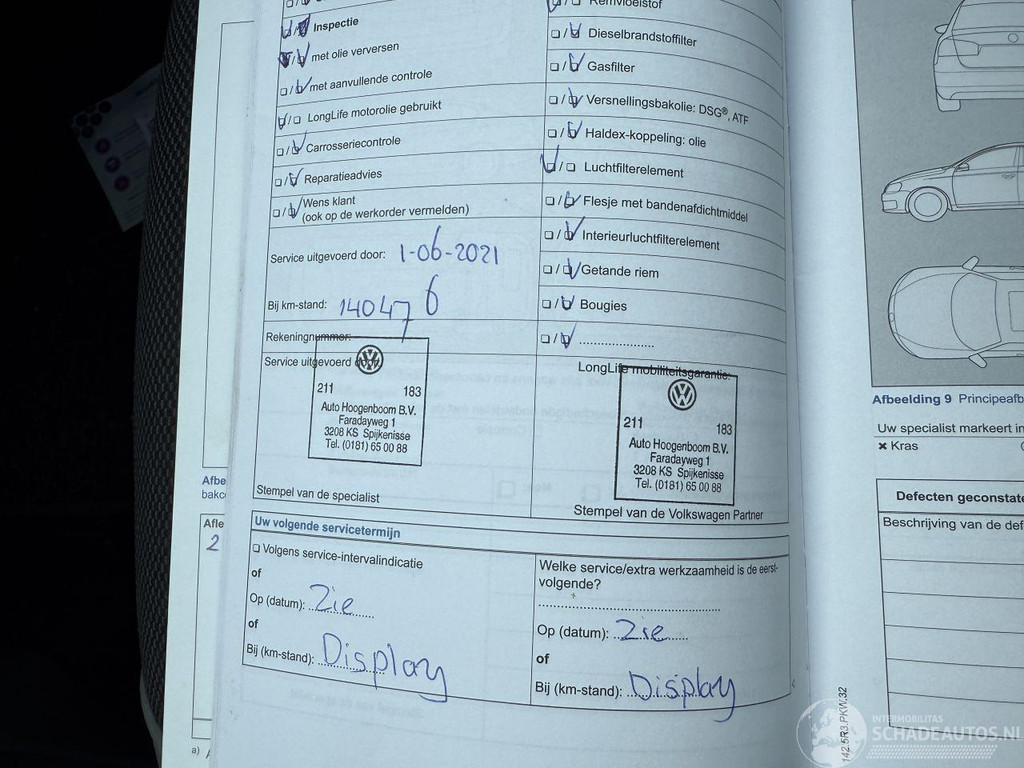 Inspectie
met olie verversen
met aanvullende controle
LongLife motorolie gebruikt
Carrosseriecontrole
Reparatieadvies
Wens klant
(ook op de werkorder vermelden)
Service uitgevoerd door: 1-06-2021
Bij km-stand: 140476
Rekeningnummer:
Service uitgevoerd door:
211 183
Auto Hoogenboom B.V.
Faradayweg 1
3208 KS Spijkenisse
Tel. (0181) 65 00 88
Stempel van de specialist
Remvloeistof
Dieselbrandstoffilter
Gasfilter
Versnellingsbakolie: DSG®, ATF
Haldex-koppeling: olie
Luchtfilterelement
Flesje met bandenafdichtmiddel
Interieurluchtfilterelement
Getande riem
Bougies
LongLife mobiliteitsgarantie:
211 183
Auto Hoogenboom B.V.
Faradayweg 1
3208 KS Spijkenisse
Tel. (0181) 65 00 88
Stempel van de Volkswagen Partner
Uw volgende servicetermijn
Volgens service-intervalindicatie
of
Op (datum): Zie
of
Bij (km-stand): Display
Welke service/extra werkzaamheid is de eerst-
volgende?
Op (datum): Zie
of
Bij (km-stand): Display
142.5R3.PKW.32
Afbe
bakc
Afle
2
a)
Afbeelding 9 Principeafb
Uw specialist markeert in
× Kras
Defecten geconstate
Beschrijving van de def
INTERMOBILITAS
SCHADEAUTOS.NL